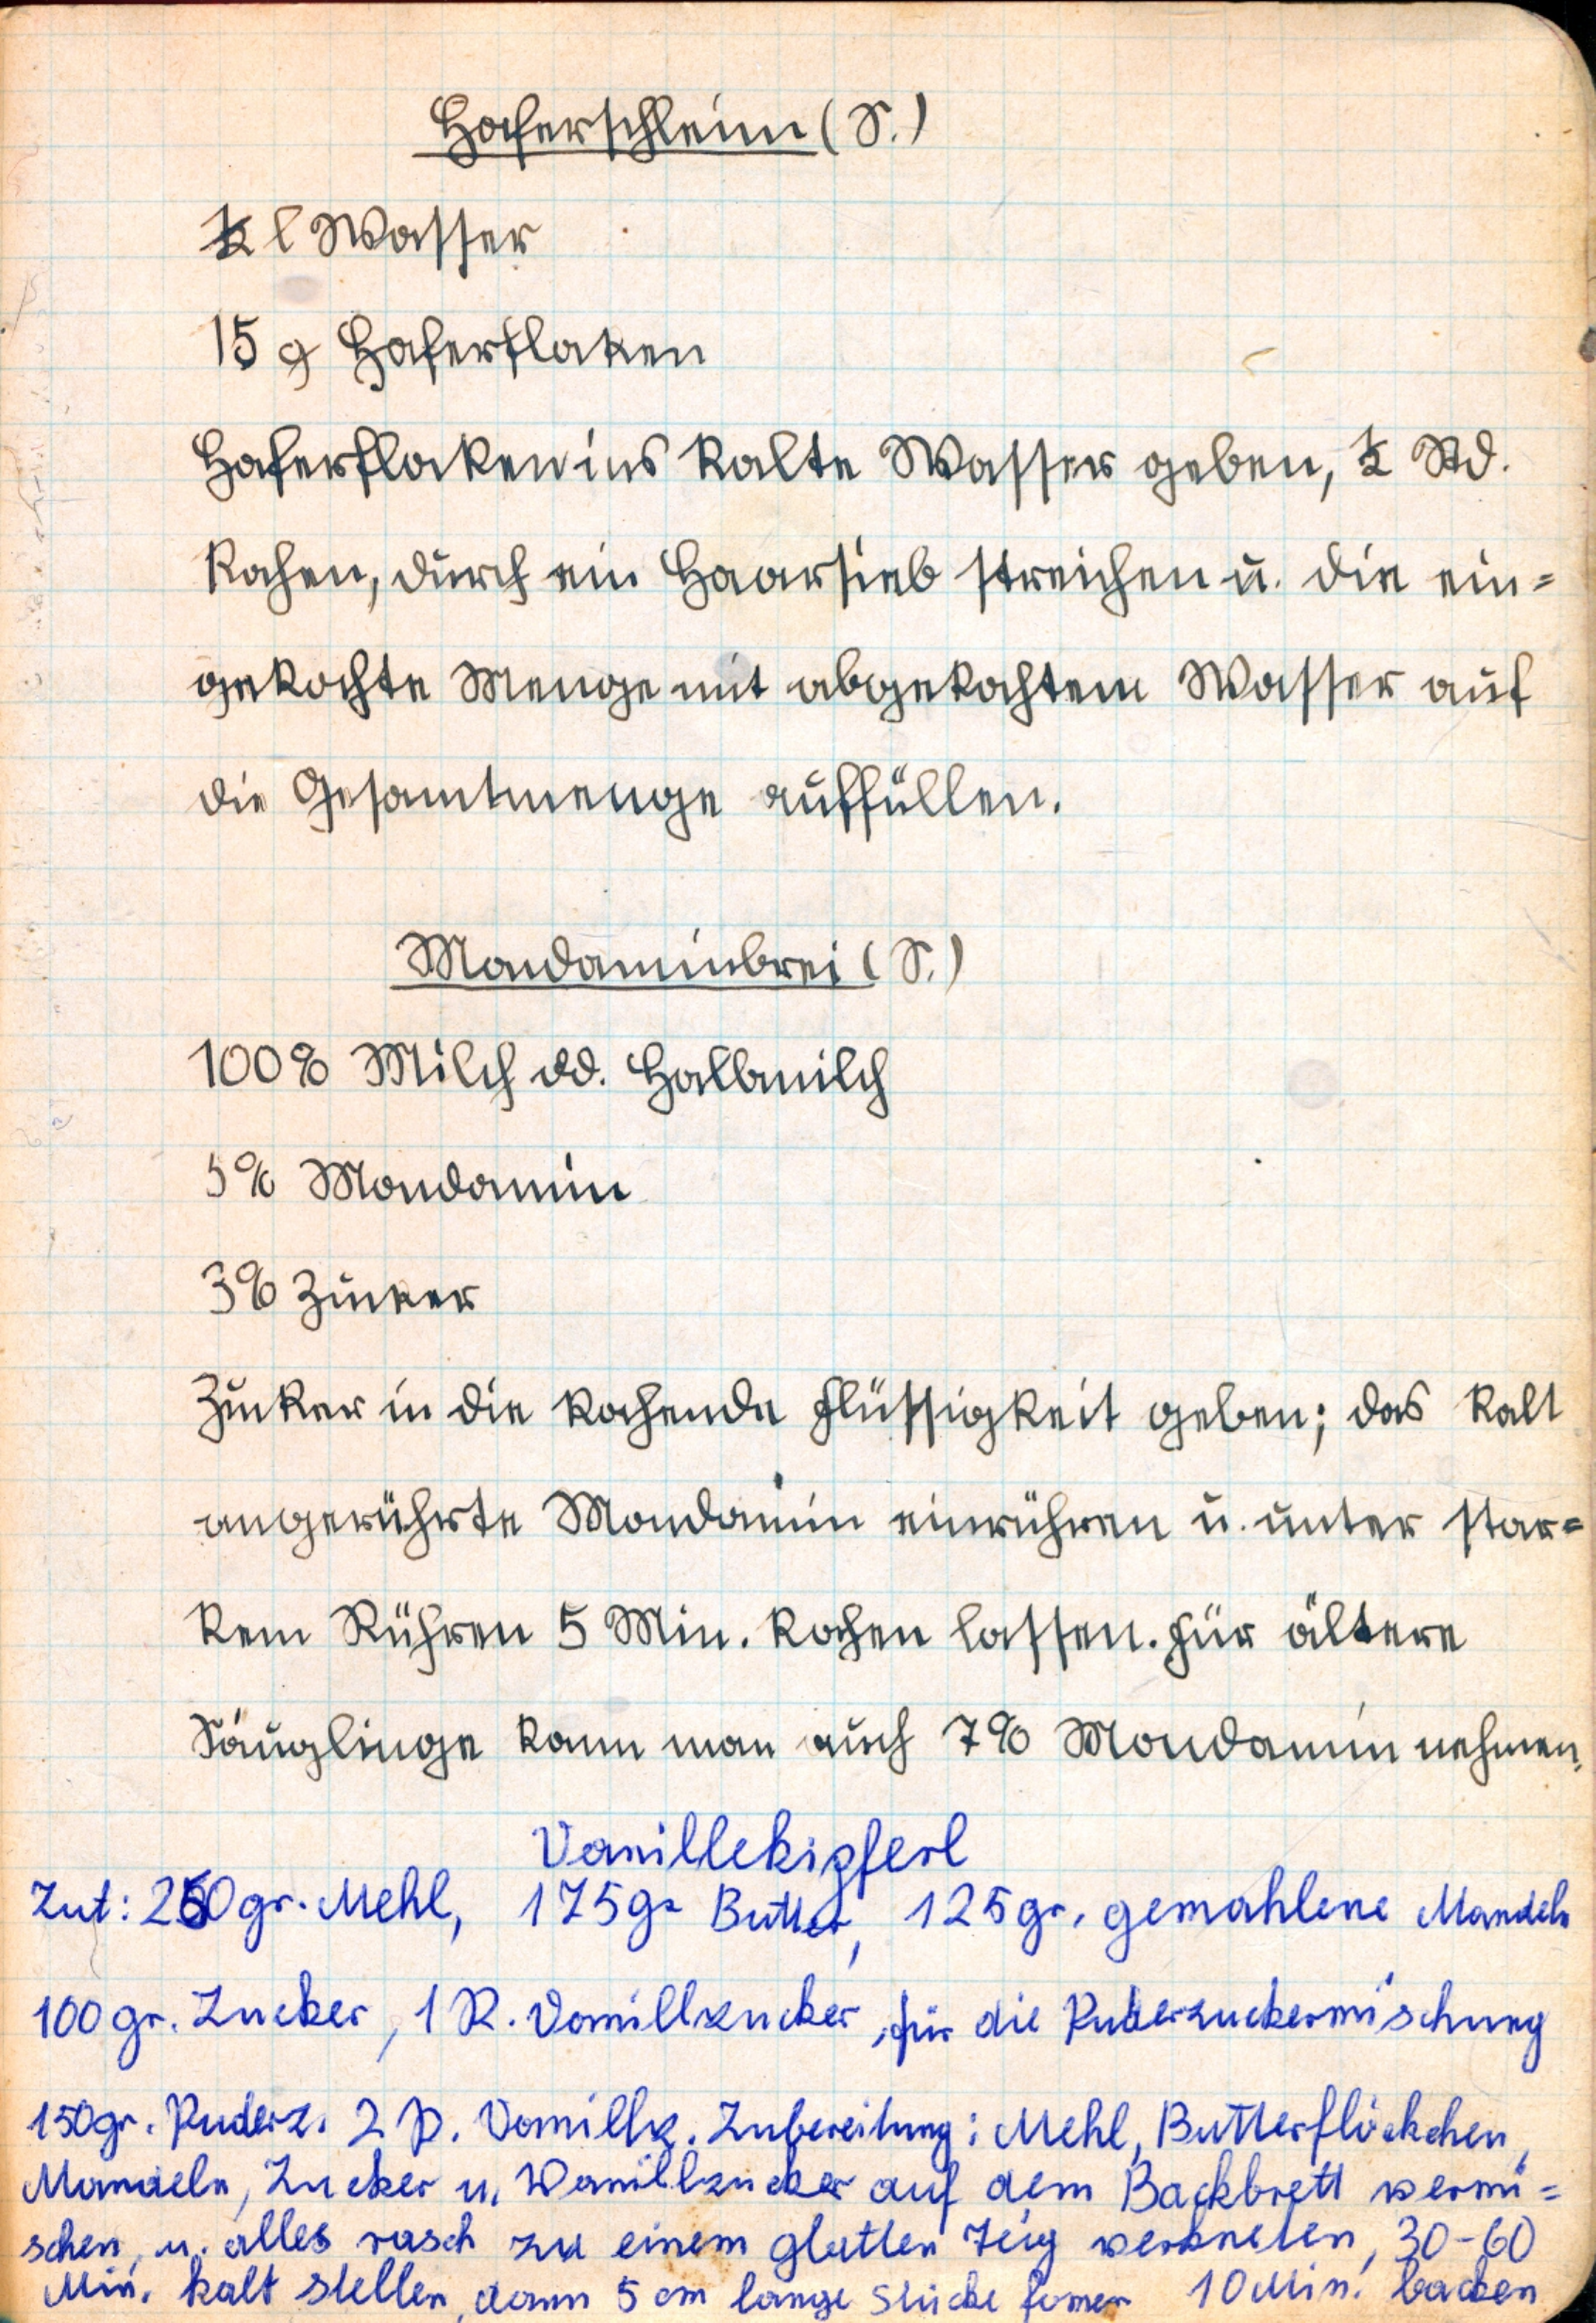 Haferschleim (S.)
½ l Wasser
15 g Haferflocken
Haferflocken ins kalte Wasser geben, ½ Std.
kochen, durch ein Haarsieb streichen u. die ein=
gekochte Menge mit abgekochtem Wasser auf
die Gesamtmenge auffüllen.
Mondaminbrei (S.)
100% Milch od. Halbmilch
5% Mondamin
3% Zucker
Zucker in die kochende Flüssigkeit geben; das kalt
angerührte Mondamin einrühren u. unter star=
kem Rühren 5 Min. kochen lassen. Für ältere
Säuglinge kann man auch 7% Mondamin nehmen.
Vanillekipferl
Zut: 250 gr. Mehl, 175 gr Butter, 125 gr. gemahlene Mandeln
100 gr. Zucker, 1 P. Vanillzucker, für die Puderzuckermischung
150 gr. Puderz. 2 P. Vanillz. Zubereitung: Mehl, Butterflöckchen,
Mandeln, Zucker u. Vanillzucker auf dem Backbrett vermi=
schen, u. alles rasch zu einem glatten Teig verkneten, 30-60
Min. kalt stellen, dann 5 cm lange Stücke formen 10 Min. backen